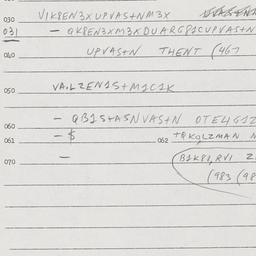 030 VIK8EN3XUPVAS+NM3X
031 - QK8EN3XM3XDUARG81CUPVAS+N
040 UPVAS+N THENT (467
050 VA.LZEN1S+M1C1K
060 - QB1S+ASNVAS+N OTE4G1Z
061 - $ 062 +8KQLZMAN
070 - (B1K81, RV1
(983 (98